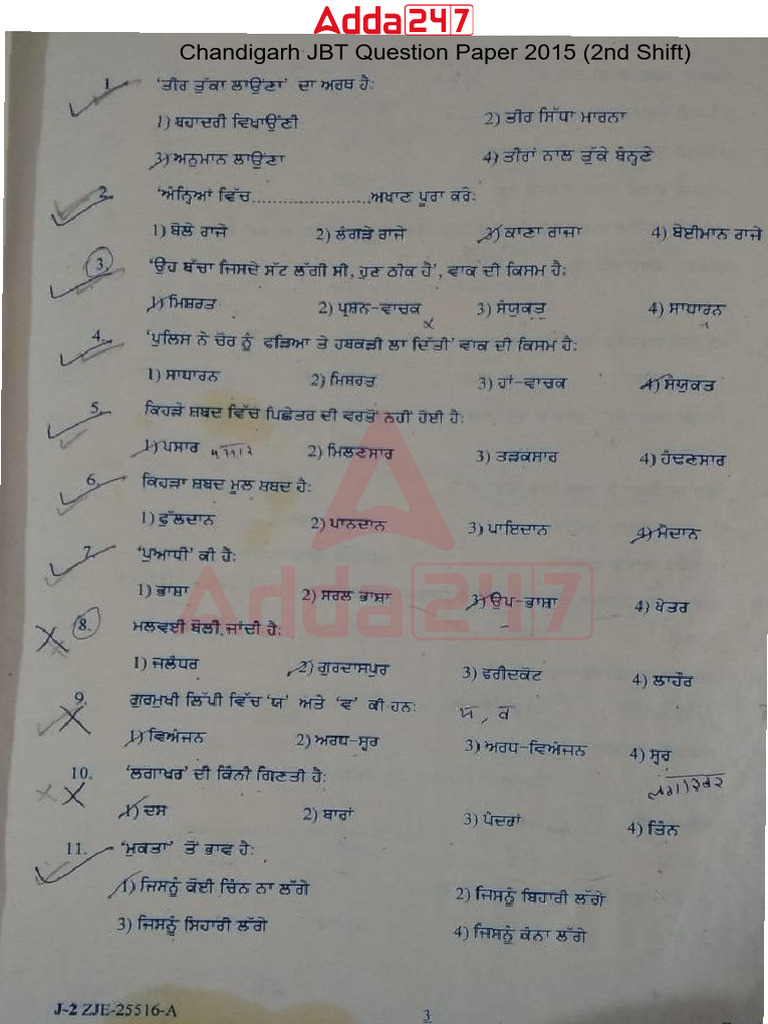 Adda247
Chandigarh JBT Question Paper 2015 (2nd Shift)
1. 'ਤੀਰ ਤੁੱਕਾ ਲਾਉਂਣਾ' ਦਾ ਅਰਥ ਹੈ:
1) ਬਹਾਦਰੀ ਵਿਖਾਉਂਣੀ 2) ਤੀਰ ਸਿੱਧਾ ਮਾਰਨਾ
3) ਅਨੁਮਾਨ ਲਾਉਂਣਾ 4) ਤੀਰਾਂ ਨਾਲ ਤੁੱਕੇ ਬੰਨ੍ਹਣੇ
2. 'ਅੰਨ੍ਹਿਆਂ ਵਿੱਚ.....................ਅਖਾਣ ਪੂਰਾ ਕਰੋ:
1) ਬੋਲੇ ਰਾਜੇ 2) ਲੰਗੜੇ ਰਾਜੇ 3) ਕਾਣਾ ਰਾਜਾ 4) ਬੇਈਮਾਨ ਰਾਜੇ
3. 'ਉਹ ਬੱਚਾ ਜਿਸਦੇ ਸੱਟ ਲੱਗੀ ਸੀ, ਹੁਣ ਠੀਕ ਹੈ', ਵਾਕ ਦੀ ਕਿਸਮ ਹੈ:
1) ਮਿਸ਼ਰਤ 2) ਪ੍ਰਸ਼ਨ-ਵਾਚਕ 3) ਸੰਯੁਕਤ 4) ਸਾਧਾਰਨ
4. 'ਪੁਲਿਸ ਨੇ ਚੋਰ ਨੂੰ ਫੜਿਆ ਤੇ ਹਥਕੜੀ ਲਾ ਦਿੱਤੀ' ਵਾਕ ਦੀ ਕਿਸਮ ਹੈ:
1) ਸਾਧਾਰਨ 2) ਮਿਸ਼ਰਤ 3) ਹਾਂ-ਵਾਚਕ 4) ਸੰਯੁਕਤ
5. ਕਿਹੜੇ ਸ਼ਬਦ ਵਿੱਚ ਪਿਛੇਤਰ ਦੀ ਵਰਤੋਂ ਨਹੀਂ ਹੋਈ ਹੈ:
1) ਪਸਾਰ 2) ਮਿਲਣਸਾਰ 3) ਤੜਕਸਾਰ 4) ਹੰਢਣਸਾਰ
6. ਕਿਹੜਾ ਸ਼ਬਦ ਮੂਲ ਸ਼ਬਦ ਹੈ:
1) ਫੁੱਲਦਾਨ 2) ਪਾਨਦਾਨ 3) ਪਾਇਦਾਨ 4) ਮੈਦਾਨ
7. 'ਪੁਆਧੀ' ਕੀ ਹੈ:
1) ਭਾਸ਼ਾ 2) ਸਰਲ ਭਾਸ਼ਾ 3) ਉਪ-ਭਾਸ਼ਾ 4) ਖੇਤਰ
Adda247
8. ਮਲਵਈ ਬੋਲੀ ਜਾਂਦੀ ਹੈ:
1) ਜਲੰਧਰ 2) ਗੁਰਦਾਸਪੁਰ 3) ਫਰੀਦਕੋਟ 4) ਲਾਹੌਰ
9. ਗੁਰਮੁਖੀ ਲਿੱਪੀ ਵਿੱਚ 'ਯ' ਅਤੇ 'ਵ' ਕੀ ਹਨ: ਯ, ਵ
1) ਵਿਅੰਜਨ 2) ਅਰਧ-ਸ੍ਵਰ 3) ਅਰਧ-ਵਿਅੰਜਨ 4) ਸ੍ਵਰ
10. 'ਲਗਾਖਰ' ਦੀ ਕਿੰਨੀ ਗਿਣਤੀ ਹੈ:
1) ਦਸ 2) ਬਾਰਾਂ 3) ਪੰਦਰਾਂ 4) ਤਿੰਨ
11. 'ਮੁਕਤਾ' ਤੋਂ ਭਾਵ ਹੈ:
1) ਜਿਸਨੂੰ ਕੋਈ ਚਿੰਨ ਨਾ ਲੱਗੇ 2) ਜਿਸਨੂੰ ਬਿਹਾਰੀ ਲੱਗੇ
3) ਜਿਸਨੂੰ ਸਿਹਾਰੀ ਲੱਗੇ 4) ਜਿਸਨੂੰ ਕੰਨਾ ਲੱਗੇ
J-2 ZJE-25516-A 3